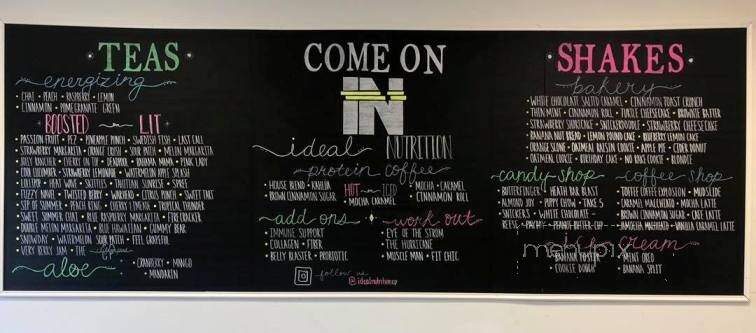 TEAS
energizing
• CHAI • PEACH • RASPBERRY • LEMON
CINNAMON • POMEGRANATE GREEN
BOOSTED or LIT
PASSION FRUIT • PEZ • PINEAPPLE PUNCH • SWEDISH FISH • LAST CALL
STRAWBERRY MARGARITA • ORANGE CRUSH • SOUR PATCH • MELON MARGARITA
JOLLY RANCHER • CHERRY ON TOP • DEADPOOL • BAHAMA MAMA • PINK LADY
COOL CUCUMBER • STRAWBERRY LEMONADE • WATERMELON APPLE SPLASH
LOLLIPOP • HEAT WAVE • SKITTLES • TAHITIAN SUNRISE • SPREE
FUZZY NAVEL • TWISTED BERRY • WARHEAD • CITRUS PUNCH • SWEET TART
TROPICAL THUNDER
SWEET SUMMER CHAI • BLUE RASPBERRY MARGARITA • FIRECRACKER
DOUBLE MELON MARGARITA • BLUE HAWAIIAN • GUMMY BEAR
SNOWDAY • WATERMELON SOUR PATCH • FEEL GRATEFUL
VERY BERRY JAM • THE
aloe
CRANBERRY • MANGO
• MANDARIN
COME ON
IN
ideal NUTRITION
protein coffee
• HOUSE BLEND • KAHLUA
BROWN CINNAMON SUGAR
HOT or ICED
MOCHA CARAMEL
MOCHA • CARAMEL
CINNAMON ROLL
add ons
IMMUNE SUPPORT
COLLAGEN • FIBER
BELLY BLASTER • PROBIOTIC
work out
EYE OF THE STORM
THE HURRICANE
MUSCLE MAN • FIT CHIC
follow us
@idealnutritionep
SHAKES
bakery
WHITE CHOCOLATE SALTED CARAMEL • CINNAMON TOAST CRUNCH
THIN MINT • CINNAMON ROLL • TURTLE CHEESECAKE BROWNIE
STRAWBERRY SHORTCAKE • SNICKERDOODLE • STRAWBERRY CHEESECAKE
BANANA NUT BREAD • LEMON POUND CAKE • BLUEBERRY LEMON CAKE
ORANGE SLICE • OATMEAL RAISIN COOKIE • APPLE PIE • CIDER DONUT
OATMEAL COOKIE • BIRTHDAY CAKE • NO BAKE COOKIE • BLONDIE
candy shop
BUTTERFINGER • HEATH BAR BLAST
ALMOND JOY • PUPPY CHOW • TAKE 5
• SNICKERS • WHITE CHOCOLATE •
REESE • PAYDAY • PEANUT BUTTER CUP
coffee shop
TOFFEE COFFEE EXPLOSION • MUDSLIDE
CARAMEL MACCHIATO • MOCHA LATTE
BROWN CINNAMON SUGAR • CAFE LATTE
CARAMEL MACCHIATO • VANILLA CARAMEL
ice cream
BANANA FOSTER • MINT OREO
COOKIE DOUGH • BANANA SPLIT
menupix